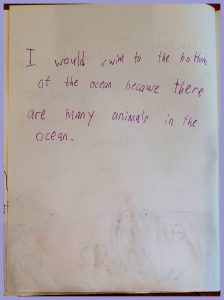 I would swim to the bottom
of the ocean because there
are many animals in the
ocean.